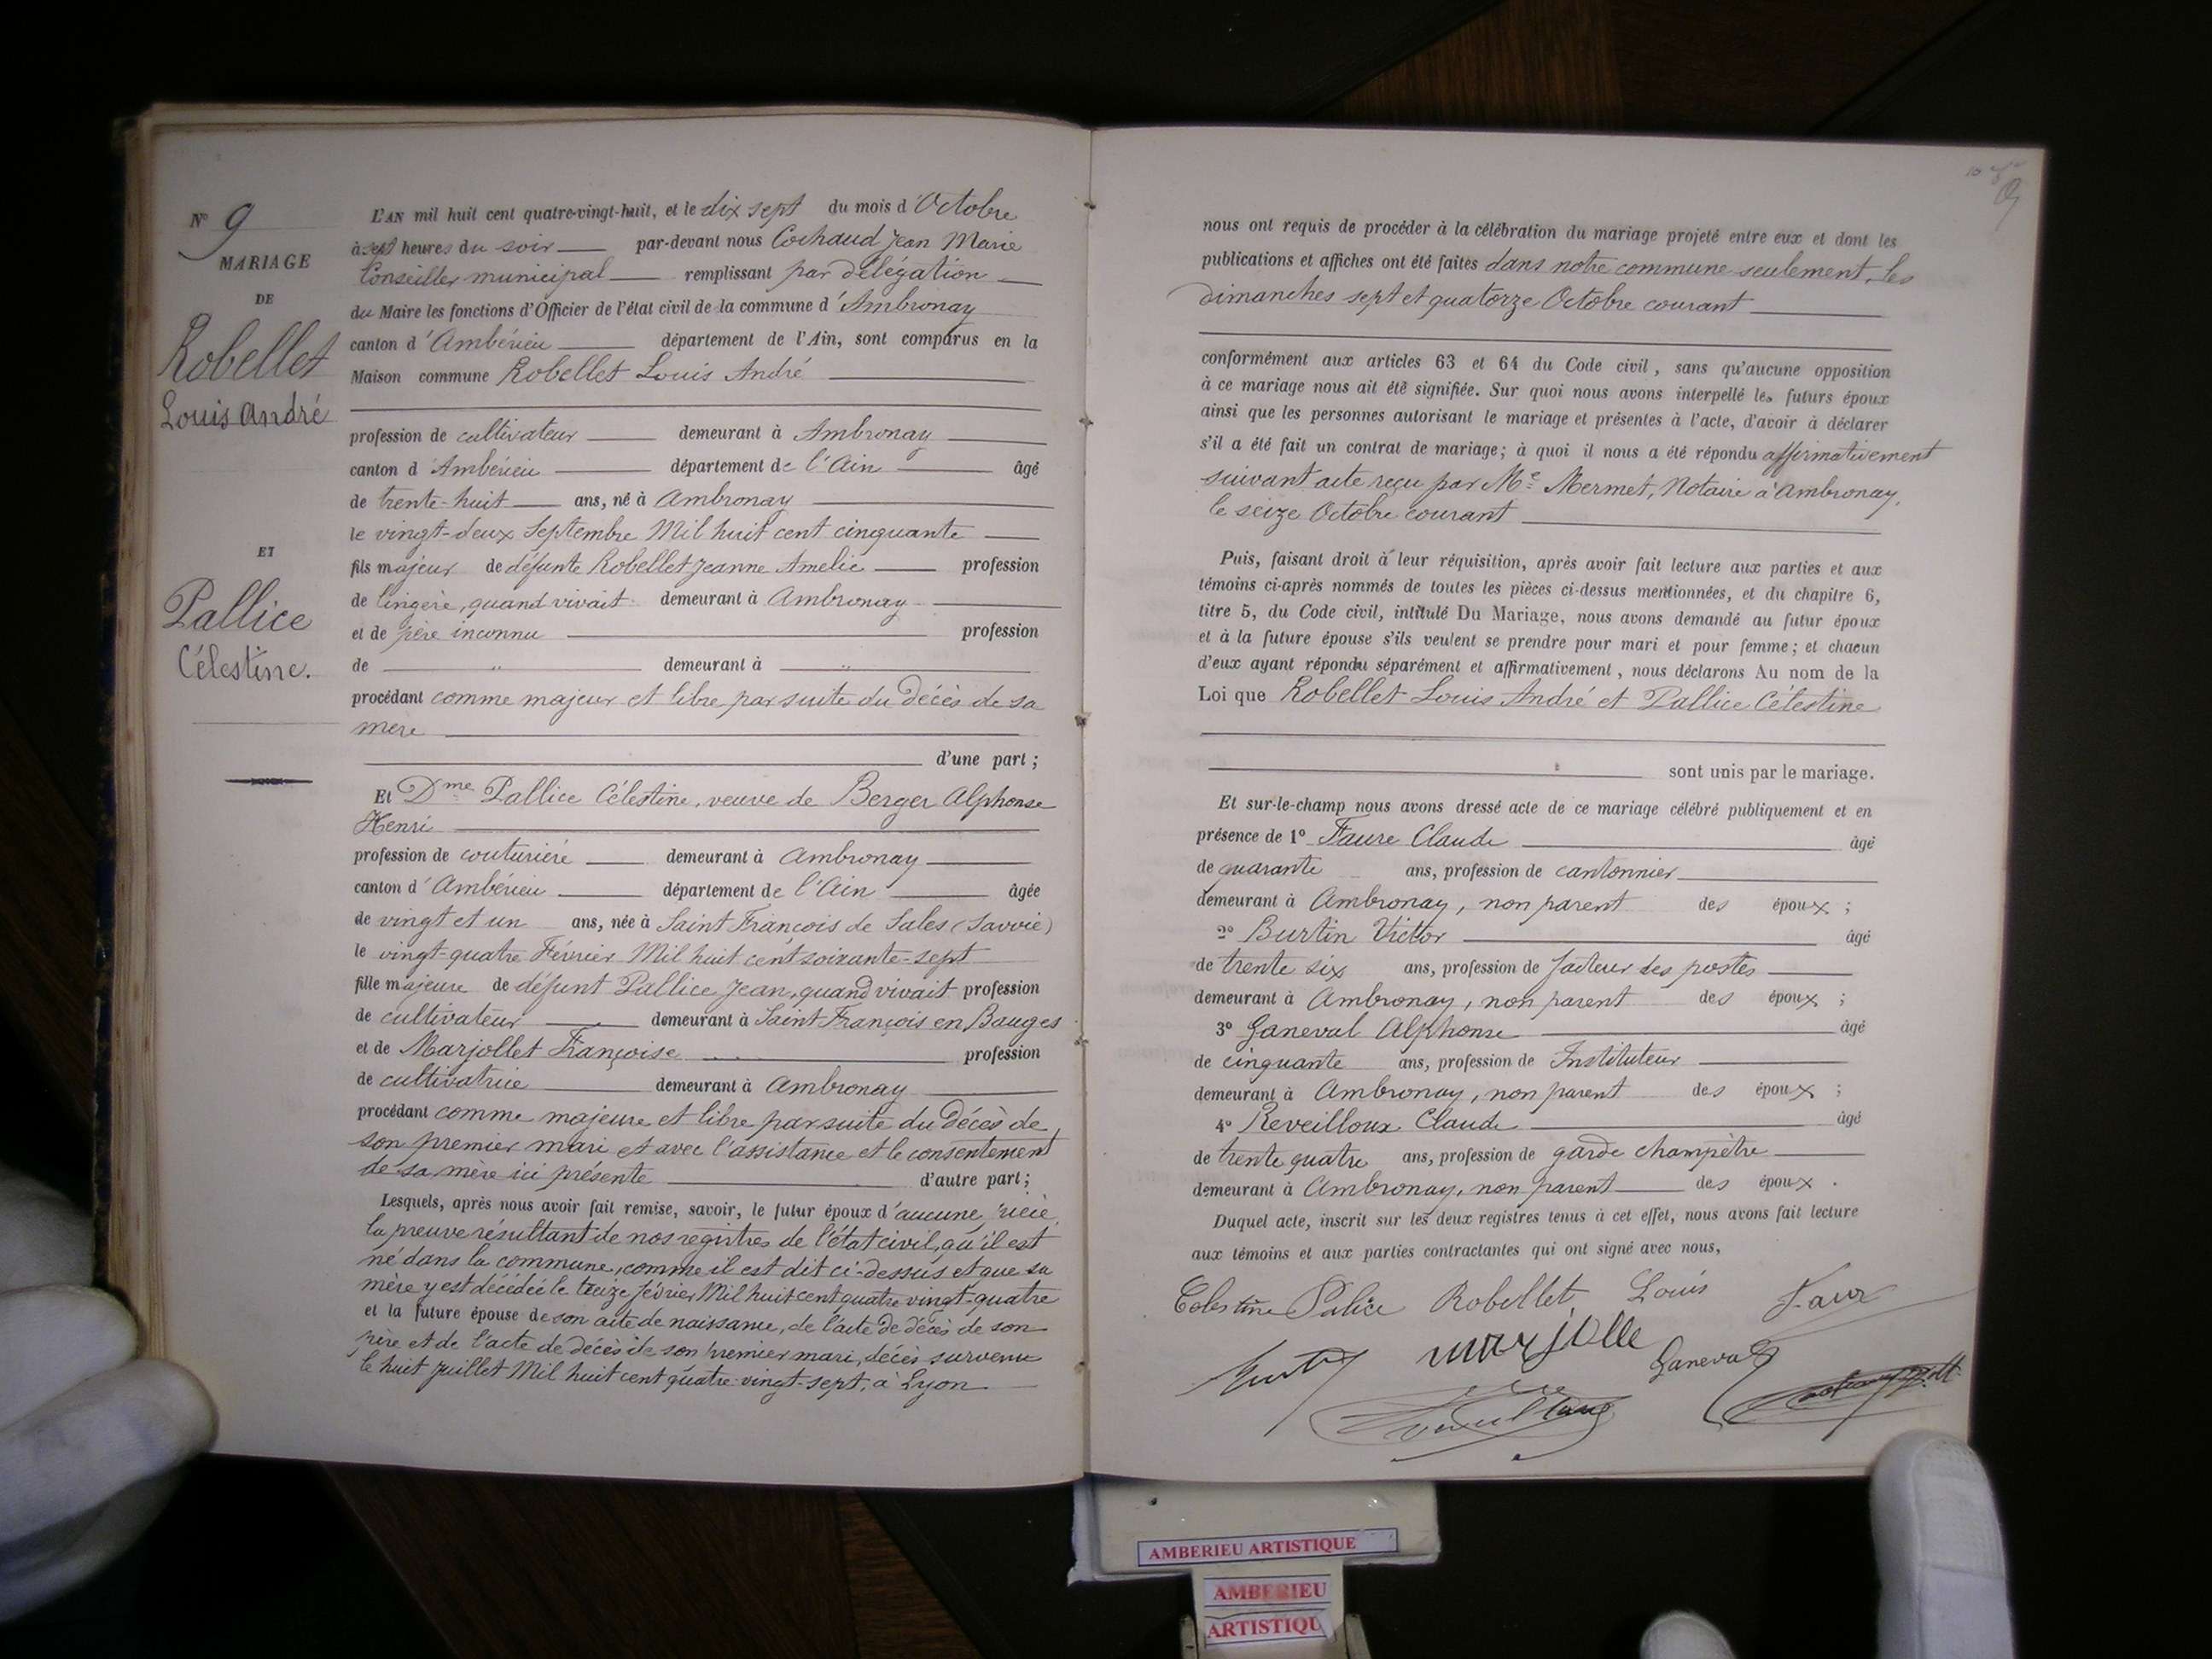 N° 9
MARIAGE
DE
Robellet
Louis André
ET
Pallice
Célestine.
L'AN mil huit cent quatre-vingt-huit, et le dix sept du mois d'Octobre
à sept heures du soir par-devant nous Cochaud Jean Marie
Conseiller municipal remplissant par délégation
du Maire les fonctions d'Officier de l'état civil de la commune d'Ambronay
canton d'Ambérieu département de l'Ain, sont comparus en la
Maison commune Robellet Louis André
profession de cultivateur demeurant à Ambronay
canton d'Ambérieu département de l'Ain âgé
de trente-huit ans, né à Ambronay
le vingt-deux Septembre Mil huit cent cinquante
fils majeur de défunte Robellet Jeanne Amelie profession
de lingère, quand vivait demeurant à Ambronay
et de père inconnu profession
de " demeurant à "
procédant comme majeur et libre par suite du décès de sa
mere
d'une part ;
Et Dme Pallice Célestine, veuve de Berger Alphonse
Henri
profession de couturière demeurant à Ambronay
canton d'Ambérieu département de l'Ain âgée
de vingt et un ans, née à Saint François de Sales (Savoie)
le vingt-quatre Février Mil huit cent soixante-sept
fille majeure de défunt Pallice Jean, quand vivait profession
de cultivateur demeurant à Saint François en Bauges
et de Marjollet Françoise profession
de cultivatrice demeurant à Ambronay
procédant comme majeure et libre par suite du décès de
son premier mari et avec l'assistance et le consentement
de sa mère ici présente d'autre part ;
Lesquels, après nous avoir fait remise, savoir, le futur époux d'aucune pièce,
la preuve résultant de nos registres de l'état civil, qu'il est
né dans la commune, comme il est dit ci-dessus et que sa
mère y est décédée le treize février Mil huit cent quatre vingt-quatre
et la future épouse de son acte de naissance, de l'acte de décès de son
père et de l'acte de décès de son premier mari, décès survenu
le huit Juillet Mil huit cent quatre-vingt-sept, à Lyon
nous ont requis de procéder à la célébration du mariage projeté entre eux et dont les
publications et affiches ont été faites dans notre commune seulement, les
dimanches sept et quatorze Octobre courant
conformément aux articles 63 et 64 du Code civil, sans qu'aucune opposition
à ce mariage nous ait été signifiée. Sur quoi nous avons interpellé les futurs époux
ainsi que les personnes autorisant le mariage et présentes à l'acte, d'avoir à déclarer
s'il a été fait un contrat de mariage ; à quoi il nous a été répondu affirmativement
suivant acte reçu par Me Mermet, Notaire à Ambronay,
le seize Octobre courant
Puis, faisant droit à leur réquisition, après avoir fait lecture aux parties et aux
témoins ci-après nommés de toutes les pièces ci-dessus mentionnées, et du chapitre 6,
titre 5, du Code civil, intitulé Du Mariage, nous avons demandé au futur époux
et à la future épouse s'ils veulent se prendre pour mari et pour femme ; et chacun
d'eux ayant répondu séparément et affirmativement, nous déclarons Au nom de la
Loi que Robellet Louis André et Pallice Célestine
sont unis par le mariage.
Et sur-le-champ nous avons dressé acte de ce mariage célébré publiquement et en
présence de 1° Faure Claude âgé
de quarante ans, profession de cantonnier
demeurant à Ambronay, non parent des époux ;
2° Burtin Victor âgé
de trente six ans, profession de facteur des postes
demeurant à Ambronay, non parent des époux ;
3° Ganeval Alphonse âgé
de cinquante ans, profession de Instituteur
demeurant à Ambronay, non parent des époux ;
4° Reveilloux Claude âgé
de trente quatre ans, profession de garde champêtre
demeurant à Ambronay, non parent des époux .
Duquel acte, inscrit sur les deux registres tenus à cet effet, nous avons fait lecture
aux témoins et aux parties contractantes qui ont signé avec nous,
Celestine Palice Robellet Louis Faur
marjolle Ganeval
AMBERIEU ARTISTIQUE
AMBERIEU
ARTISTIQU